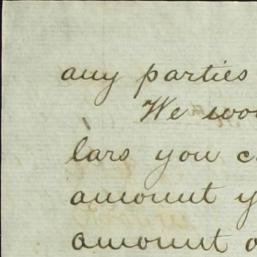 any parties
We
lars you
amount
amount